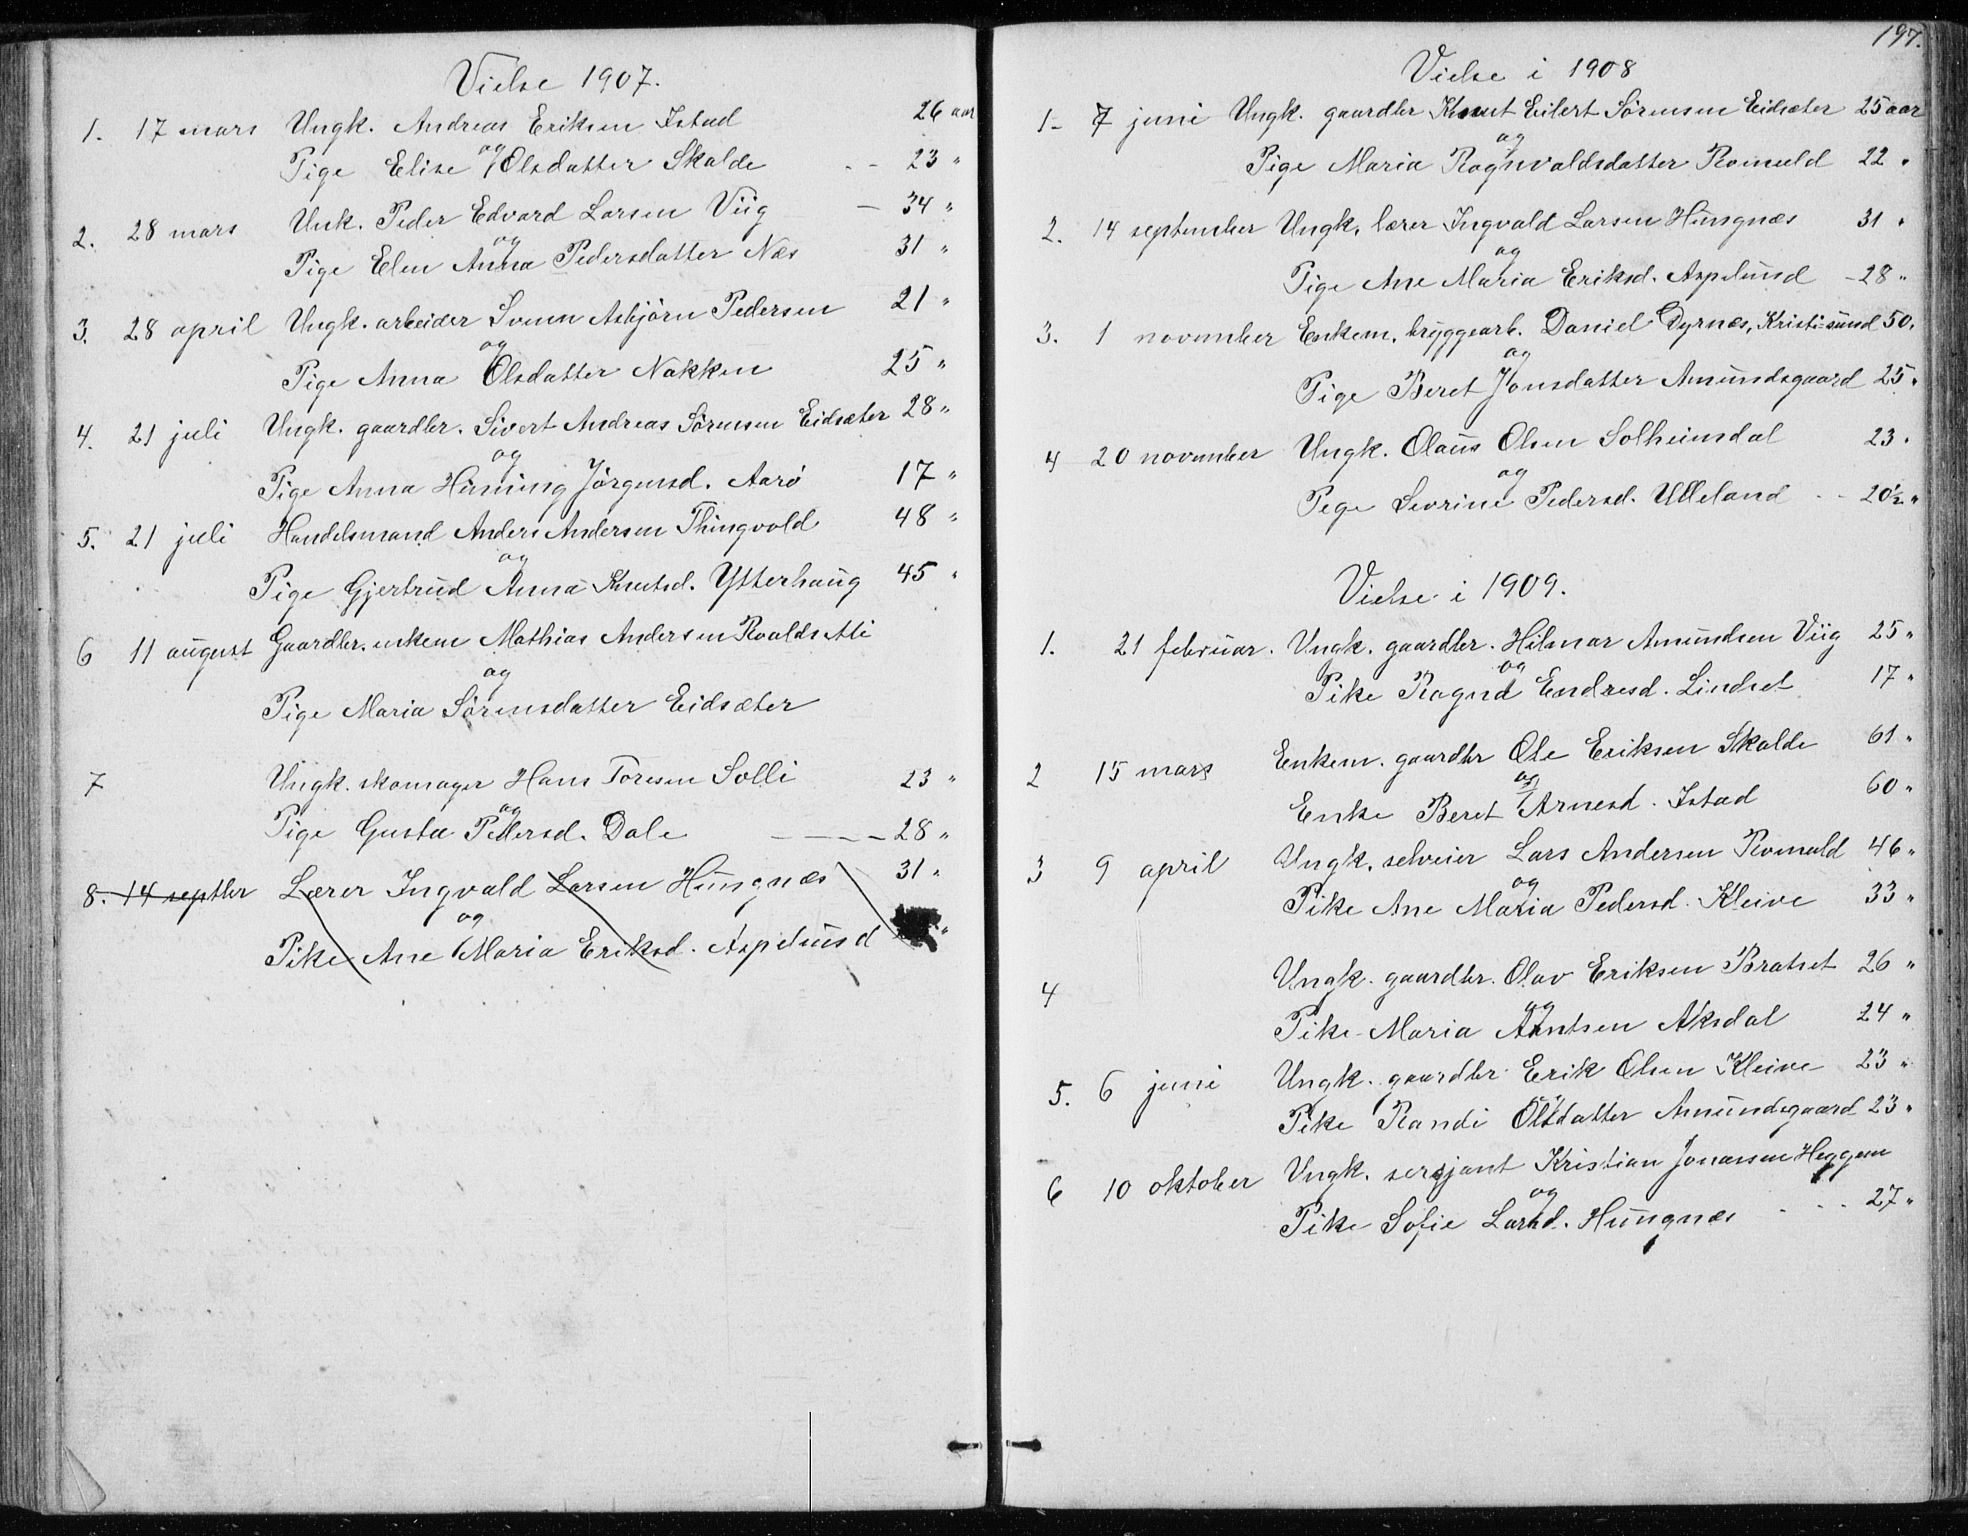 Vielse 1907.
1. 17 mars Ungk. Andreas Eriksen Istad 26 aar
og
Pige Elise Olsdatter Skalde - - 23 "
2. 28 mars Unk. Peder Edvard Larsen Viig - 34 "
og
Pige Elen Anna Pedersdatter Næs 31 "
3. 28 april Ungk. arbeider Svenn Asbjörn Pedersen 21 "
og
Pige Anna Olsdatter Nakken 25 "
4. 21 juli Ungk. gaardbr. Sivert Andreas Sörensen Eidsæter 28 "
og
Pige Anna Hünning Jörgensd. Aarö 17 "
5. 21 juli Handelsmand Anders Andersen Thingvold 48 "
og
Pige Gjertrud Anna Knutsd. Ytterhaug 45 "
6 11 august Gaardbr. enkem Mathias Andersen Roaldsæti
og
Pige Maria Sörensdatter Eidsæter
7 Ungk. skomager Hans Toresen Solli 23 "
og
Pige Gusta Pedersd. Dale - - - - 28 "
8. 14 septbr Lærer Ingvald Larsen Hungnæs 31 "
og
Pike Ane Maria Eriksd. Aspelund "
197.
Vielse i 1908
1- 7 juni Ungk. gaardbr Knut Eilert Sörensen Eidsæter 25 aar
og
Pige Maria Ragnvaldsdatter Romuld 22 "
2. 14 september Ungk. lærer Ingvald Larsen Hungnæs 31 "
og
Pige Ane Maria Eriksd. Aspelund - 28 "
3. 1 november Enkem. bryggearb. Daniel Dyrnæs, Kristi=sund 50.
og
Pige Beret Jonsdatter Amundsgaard 25 "
4 20 november Ungk. Olaus Olsen Solheimsdal 23 "
og
Pege Sevrine Pedersd. Ulleland - - 20½ "
Vielse i 1909.
1. 21 februar. Ungk. gaardbr. Hilmar Amundsen Viig 25 "
og
Pike Ragna Endresd. Lindset 17 "
2 15 mars Enkem. gaardbr Ole Eriksen Skalde 61 "
og
Enke Beret Arnesd. Istad 60 "
3 9 april Ungk. selveier Lars Andersen Romuld 46 "
og
Pike Ane Maria Pedersd. Kleive 33 "
4 Ungk. gaardbr. Olav Eriksen Bratset 26 "
og
Pike Maria Arntsen Aksdal 24 "
5. 6 juni Ungk. gaardbr Erik Olsen Kleive 23 "
Pike Randi Olsdatter Amundsgaard 23 "
6 10 oktober Ungk. sersjant Kristian Jonassen Heggem
og
Pike Sofie Larsd. Hungnæs - - - 27 "